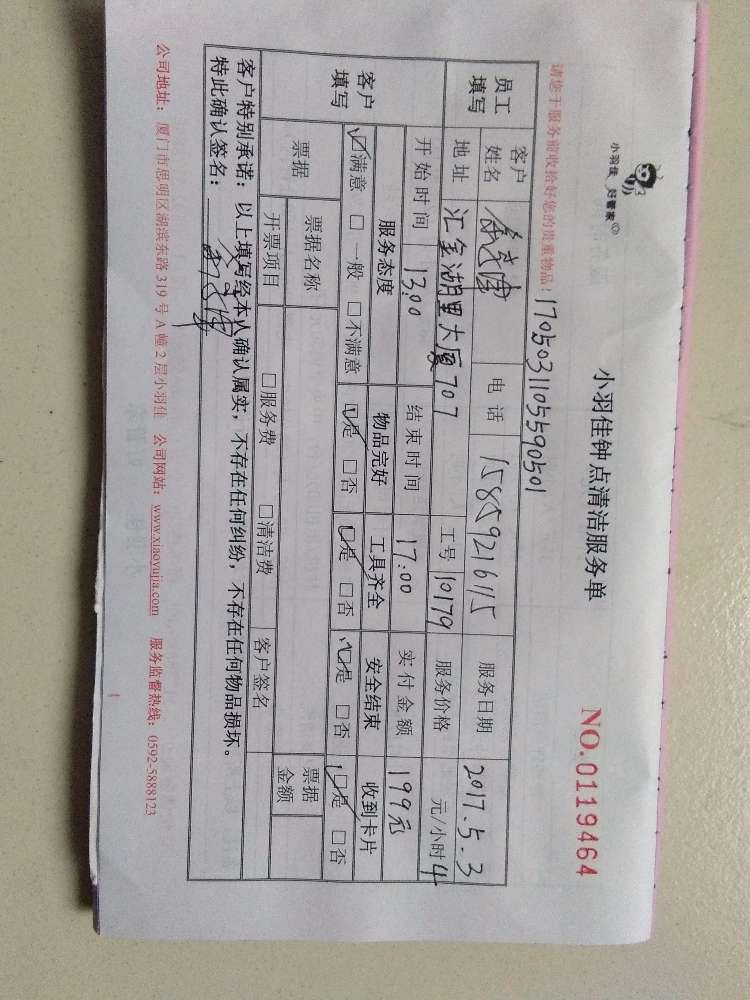 小羽佳 好管家
小羽佳钟点清洁服务单
NO.0119464
请您于服务前收拾好您的贵重物品!
1705031105590501
员工填写
客户姓名 电话 15859216115 服务日期 2017.5.3
地址 汇金湖里大厦707 工号 10179 服务价格 元/小时 4
客户填写
开始时间 13:00 结束时间 17:00 实付金额 199元
服务态度 物品完好 工具齐全 安全结束 收到卡片
☑满意 □一般 □不满意 ☑是 □否 ☑是 □否 ☑是 □否 ☑是 □否
票据 票据名称 票据金额
开票项目 □服务费 □清洁费 客户签名
客户特别承诺：以上填写经本人确认属实，不存在任何纠纷，不存在任何物品损坏。
特此确认签名：
公司地址：厦门市思明区湖滨东路319号A幢2层小羽佳 公司网站：www.xiaoyujia.com 服务监督热线：0592-5888123